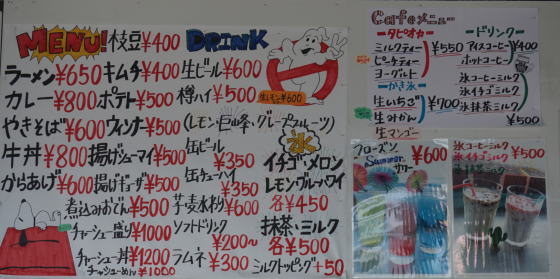 MENU!
ラーメン¥650
カレー¥800
やきそば¥600
牛丼¥800
からあげ¥600
枝豆¥400
キムチ¥400
ポテト¥500
ウィンナ¥500
揚げシューマイ¥500
揚げギョーザ¥500
煮込みおでん¥500
チャーシュー盛り¥1000
チャーシュー丼¥1200
チャーシューめん¥1000
DRINK
生ビール¥600
樽ハイ¥500
生レモン¥600
(レモン・巨峰・グレープフルーツ)
缶ビール
¥350
缶チューハイ
¥350
芋・麦水わり¥600
ソフトドリンク
¥200~
ラムネ¥300
氷
イチゴ・メロン
レモン・ブルーハワイ
各¥450
抹茶・ミルク
各¥500
ミルクトッピング+50
Cafeメニュー
ータピオカー
ミルクティー
ピーチティー
ヨーグルト
¥550
ーかき氷ー
生いちご
生みかん
生マンゴー
¥700
ードリンクー
アイスコーヒー¥400
ホットコーヒー
氷コーヒーミルク
氷イチゴミルク
氷抹茶ミルク
¥500
フローズン
Summer
サワー
¥600
氷コーヒーミルク
氷イチゴミルク
氷抹茶ミルク
¥500